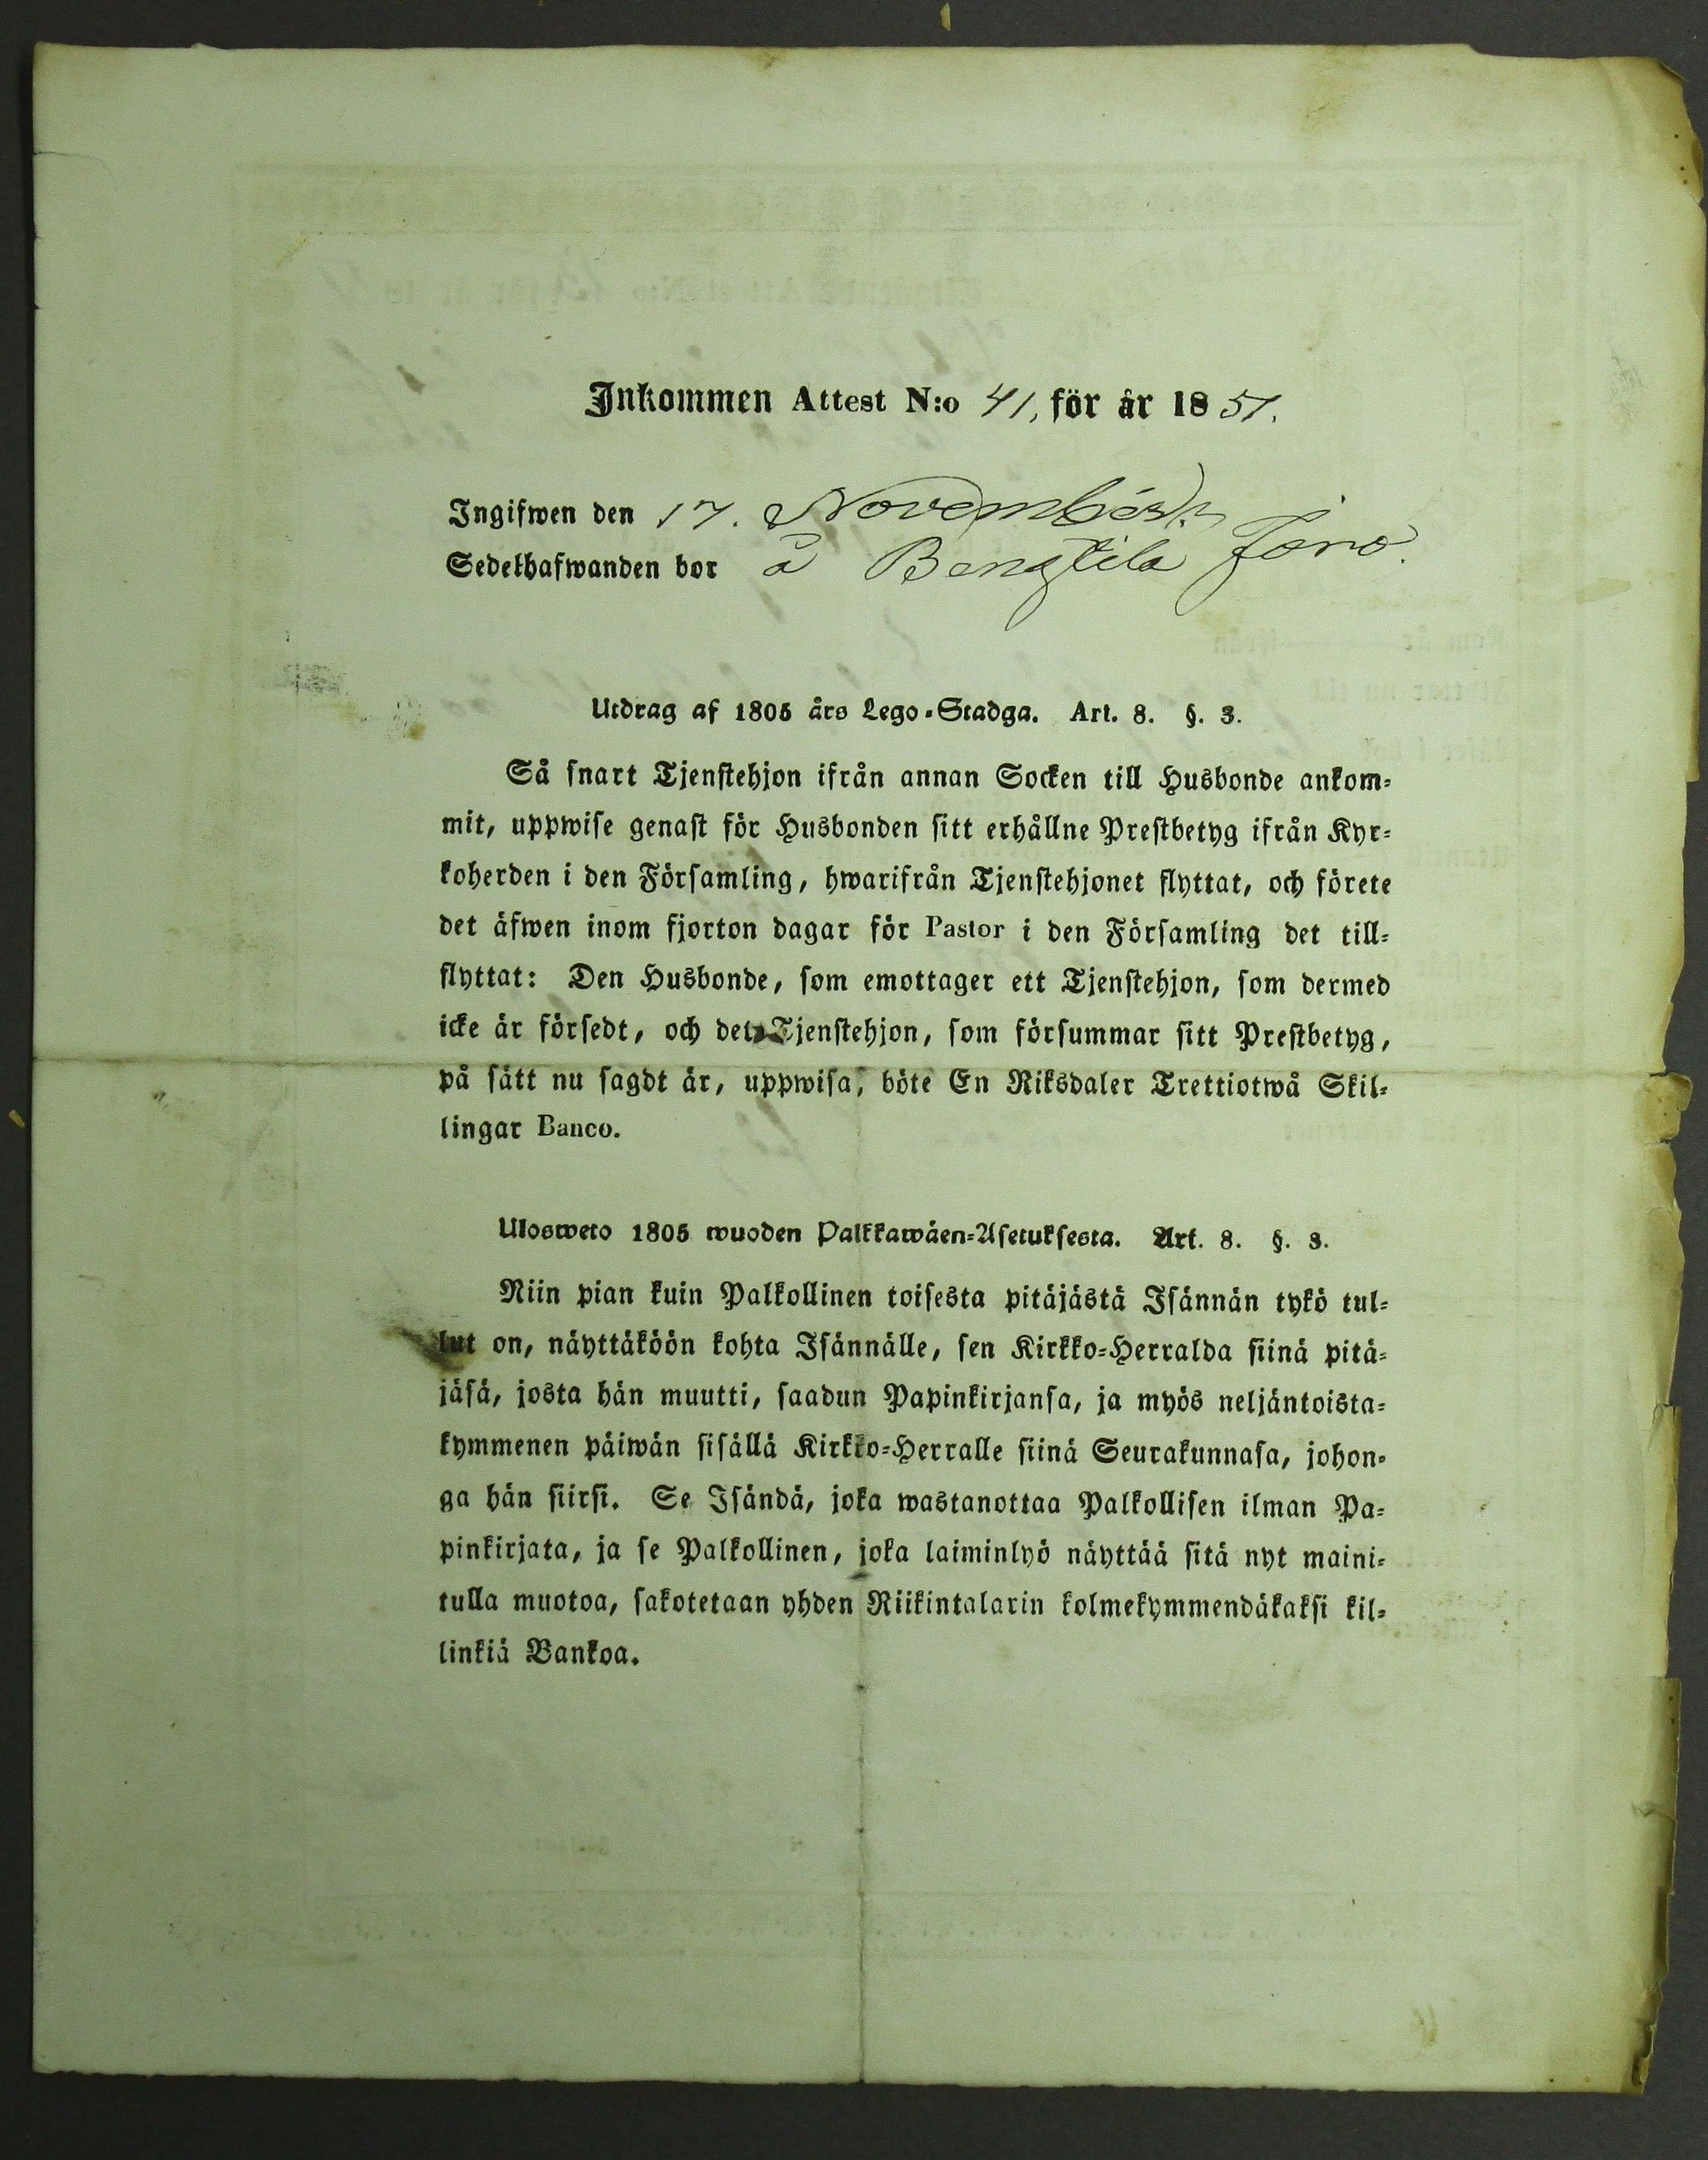 Inkommen Attest N:o 41, för år 1851.
Ingifwen den 17. November
Sedelhafwanden bor å Bengtila
Utdrag af 1805 års Lego-Stadga. Art. 8. §. 3.
Så snart Tjenstehjon ifrån annan Socken till Husbonde ankom-
mit, uppwise genast för Husbonden sitt erhållne Prestbetyg ifrån Kyr-
koherden i den Församling, hwarifrån Tjenstehjonet flyttat, och förete
det äfwen inom fjorton dagar för Pastor i den Församling det till-
flyttat: Den Husbonde, som emottager ett Tjenstehjon, som dermed
icke är försedt, och det Tjenstehjon, som försummar sitt Prestbetyg,
på sätt nu sagdt är, uppwisa, böte En Riksdaler Trettiotwå Skil-
lingar Banco.
Ulosweto 1805 wuoden Palkkawäen-Asetuksesta. Art. 8. §. 3.
Niin pian kuin Palkollinen toisesta pitäjästä Isännän tykö tul-
lut on, näyttäköön kohta Isännälle, sen Kirkko-Herralda siinä pitä-
jäsä, josta hän muutti, saadun Papinkirjansa, ja myös neljäntoista-
kymmenen päiwän sisällä Kirkko-Herralle siinä Seurakunnasa, johon-
ga hän siirsi. Se Isändä, joka wastanottaa Palkollisen ilman Pa-
pinkirjata, ja se Palkollinen, joka laiminlyö näyttää sitä nyt maini-
tulla muotoa, sakotetaan yhden Riikintalarin kolmekymmendäkaksi kil-
linkiä Bankoa.